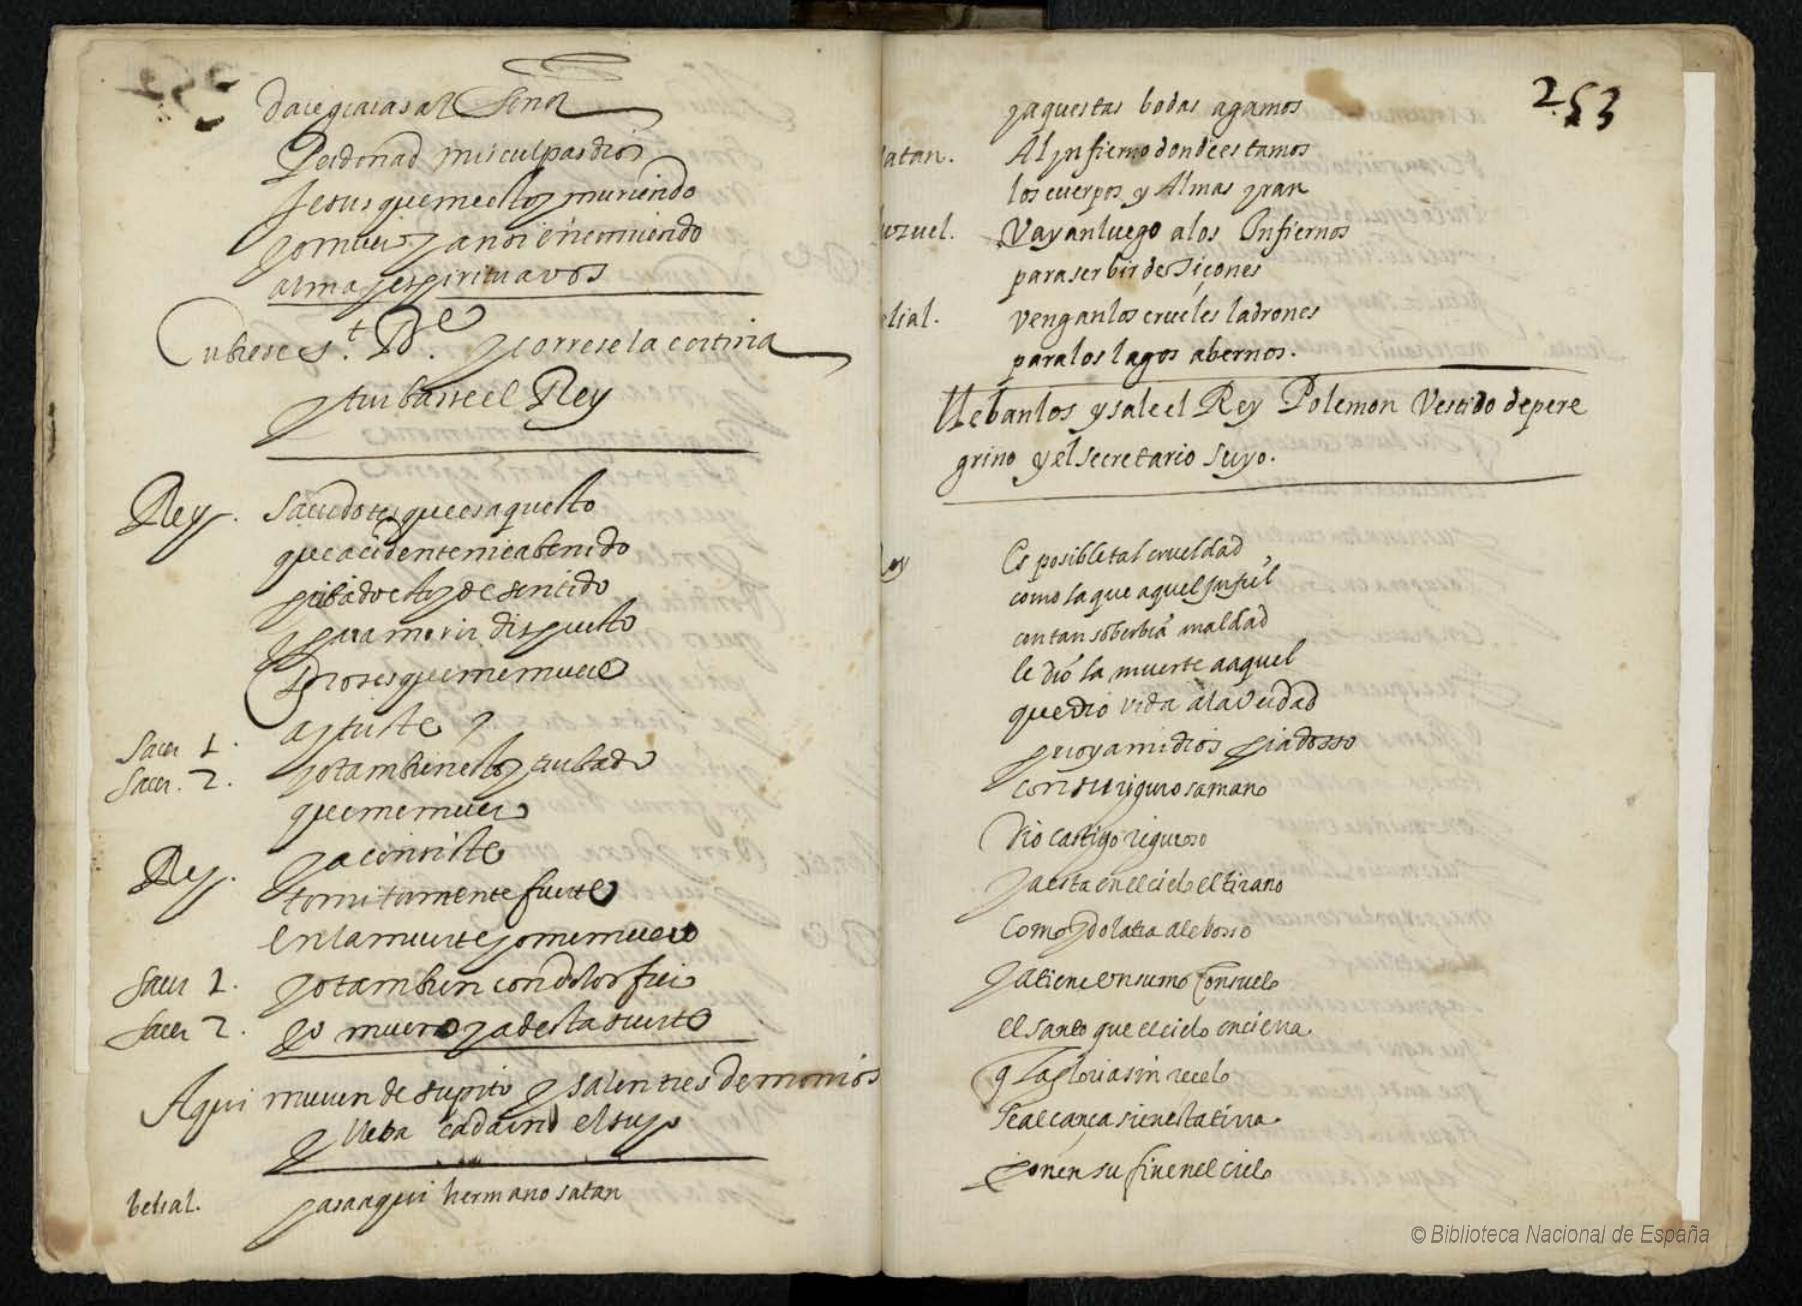 dare graçias al Señor
Perdonad mis culpas dios
Jesus que me estoy muriendo
yo muero y ansi encomiendo
alma y espiritu a vos
Cubrese S.t B.e y correse la cortina
y turbasse el Rey
Rey. Sacerdotes que es aquesto
que acidente me a benido
pribado estoy de sentido
y para morir dispuesto
Dioses que me muero
Sacer 1. ay triste
Sacer. 2. yo tambien estoy turbado
que me muero
Rey. ya conosiste
en la muerte yo me muero
Sacer 1. yo tambien con dolor fiero
Sacer 2. yo muero y a desta suerte
Aqui mueren de supito y salen tres demonios
y lleba cada uno el suyo
belial. pasa aqui hermano satan
253
y aquestas bodas agamos
satan. Al ynfierno donde estamos
los cuerpos y Almas yran
uzuel. Vayan luego a los Infiernos
para serbir de tiçones
elial. vengan los crueles ladrones
para los lagos abernos.
Llebanlos y sale el Rey Polemon Vestido de pere
grino y el secretario suyo.
Rey Es posible tal crueldad
como la que aquel ynfiel
con tan soberbia maldad
le dio la muerte a aquel
que dio vida a la verdad
pero ya mi dios piadosso
con su rigurosa mano
dio castigo riguroso
ya esta en el cielo el tirano
como ydolatra alebosso
ya tiene en sumo consuelo
el santo que el cielo encierra
q la gloria sin recelo
se alcança si en esta tierra
ponen su fin en el cielo
© Biblioteca Nacional de España